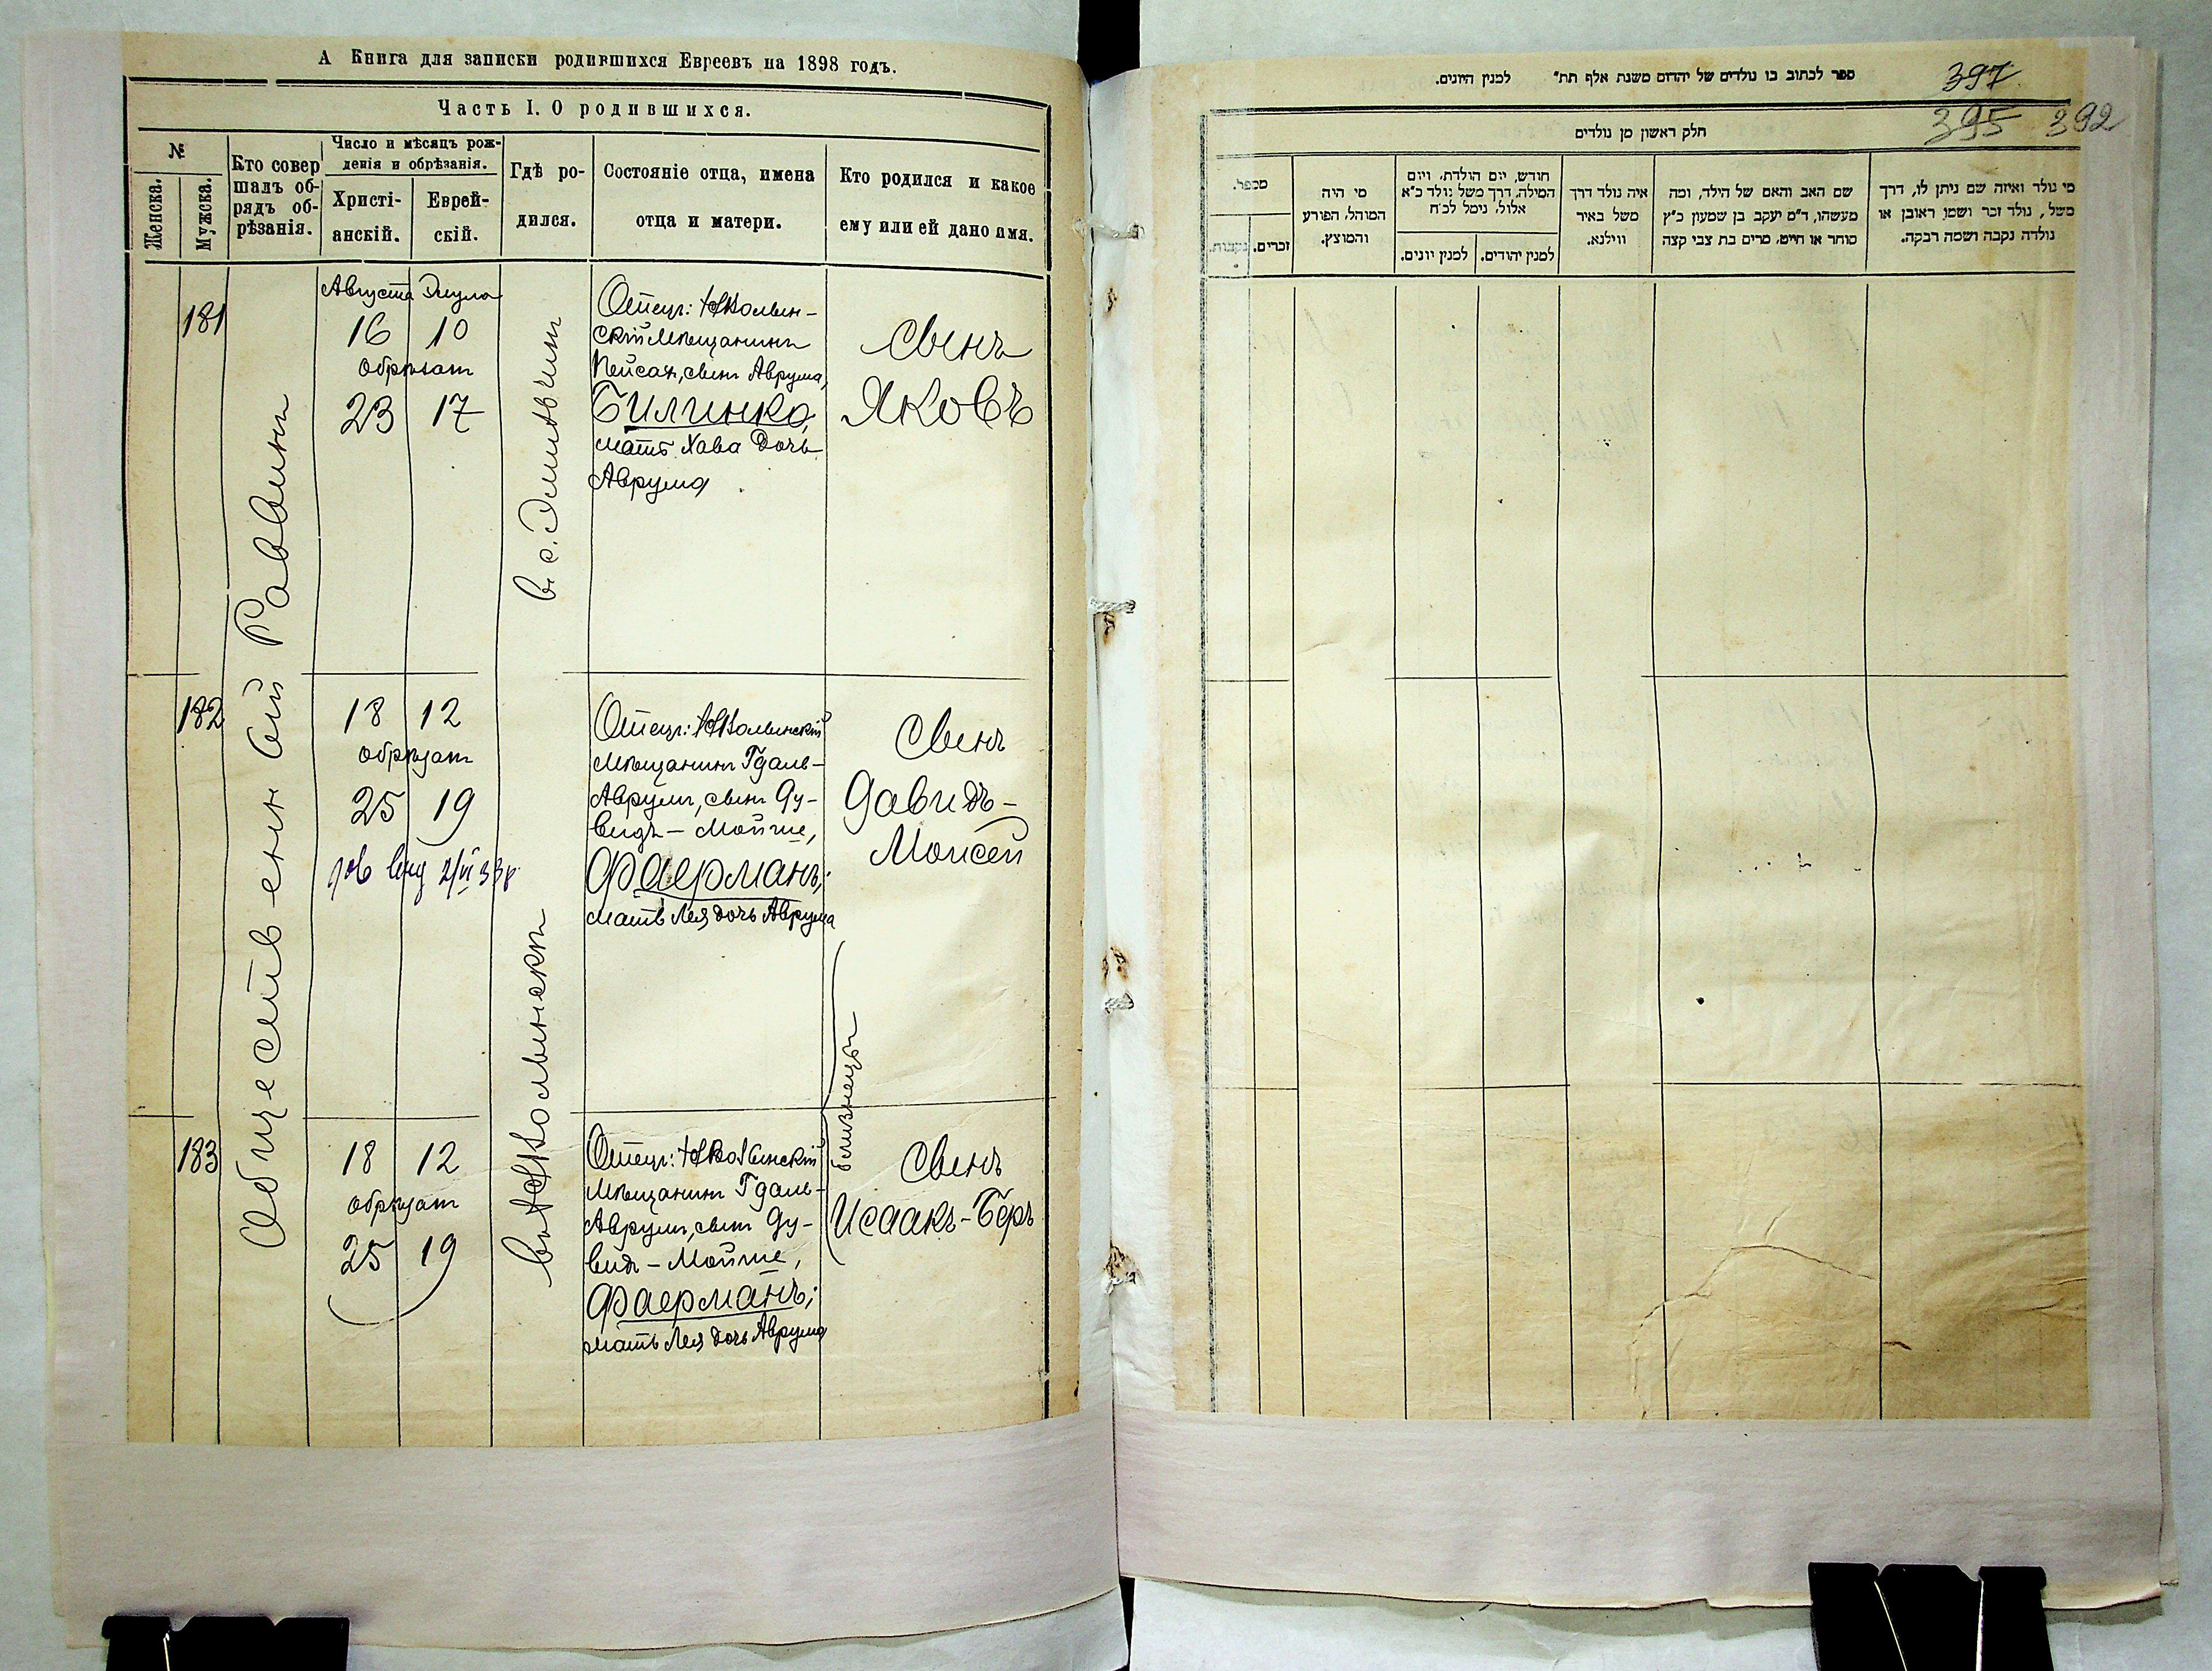 А Книга для записки родившихся Евреевъ на 1898 годъ.
Часть I. О родившихся.
№
Женска.
Мужска.
Кто совер
шалъ об-
рядъ об-
рѣзанія.
Число и мѣсяцъ рож-
денія и обрѣзанія.
Христі-
анскій.
Еврей-
скій.
Гдѣ ро-
дился.
Состояніе отца, имена
отца и матери.
Кто родился и какое
ему или ей дано имя.
Общественный Раввинъ
181
Августа Элула
16 10
обрѣзан
23 17
Отецъ:
скій Мѣщанинъ
Пейсах, сынъ Аврума,
Билинко,
мать Хава дочь
Аврума
сынъ
Яковъ
182
18 12
обрѣзан
25 19
Отецъ:
Мѣщанинъ Гдаль-
Аврумъ, сынъ Ду-
видъ - Мойше,
Фаерманъ;
мать Лея дочь Аврума
Сынъ
Давидъ-
Моисей
близнецы
183
18 12
обрѣзан
25 19
Отецъ:
Мѣщанинъ Гдаль-
Аврумъ, сынъ Ду-
видъ - Мойше,
Фаерманъ;
мать Лея дочь Аврума
Сынъ
Исаакъ-Беръ
ספר לכתוב בו נולדים של יהודים משנת אלף תת" למנין היונים.
397
395 392
חלק ראשון מן נולדים
מספר.
זכרים.
נקבות.
מי היה
המוהל, הפורע
והמוצץ.
חודש, יום הולדת, ויום
המילה, דרך משל נולד כ"א
אלול, נימל לכ"ח
למנין יונים.
למנין יהודים.
איה נולד דרך
משל באיר
ווילנא.
שם האב והאם של הילד, ומה
מעשהו, ד"מ יעקב בן שמעון כ"ץ
סוחר או חייט, מרים בת צבי קצה
מי נולד ואיזה שם ניתן לו, דרך
משל, נולד זכר ושמו ראובן או
נולדה נקבה ושמה רבקה.